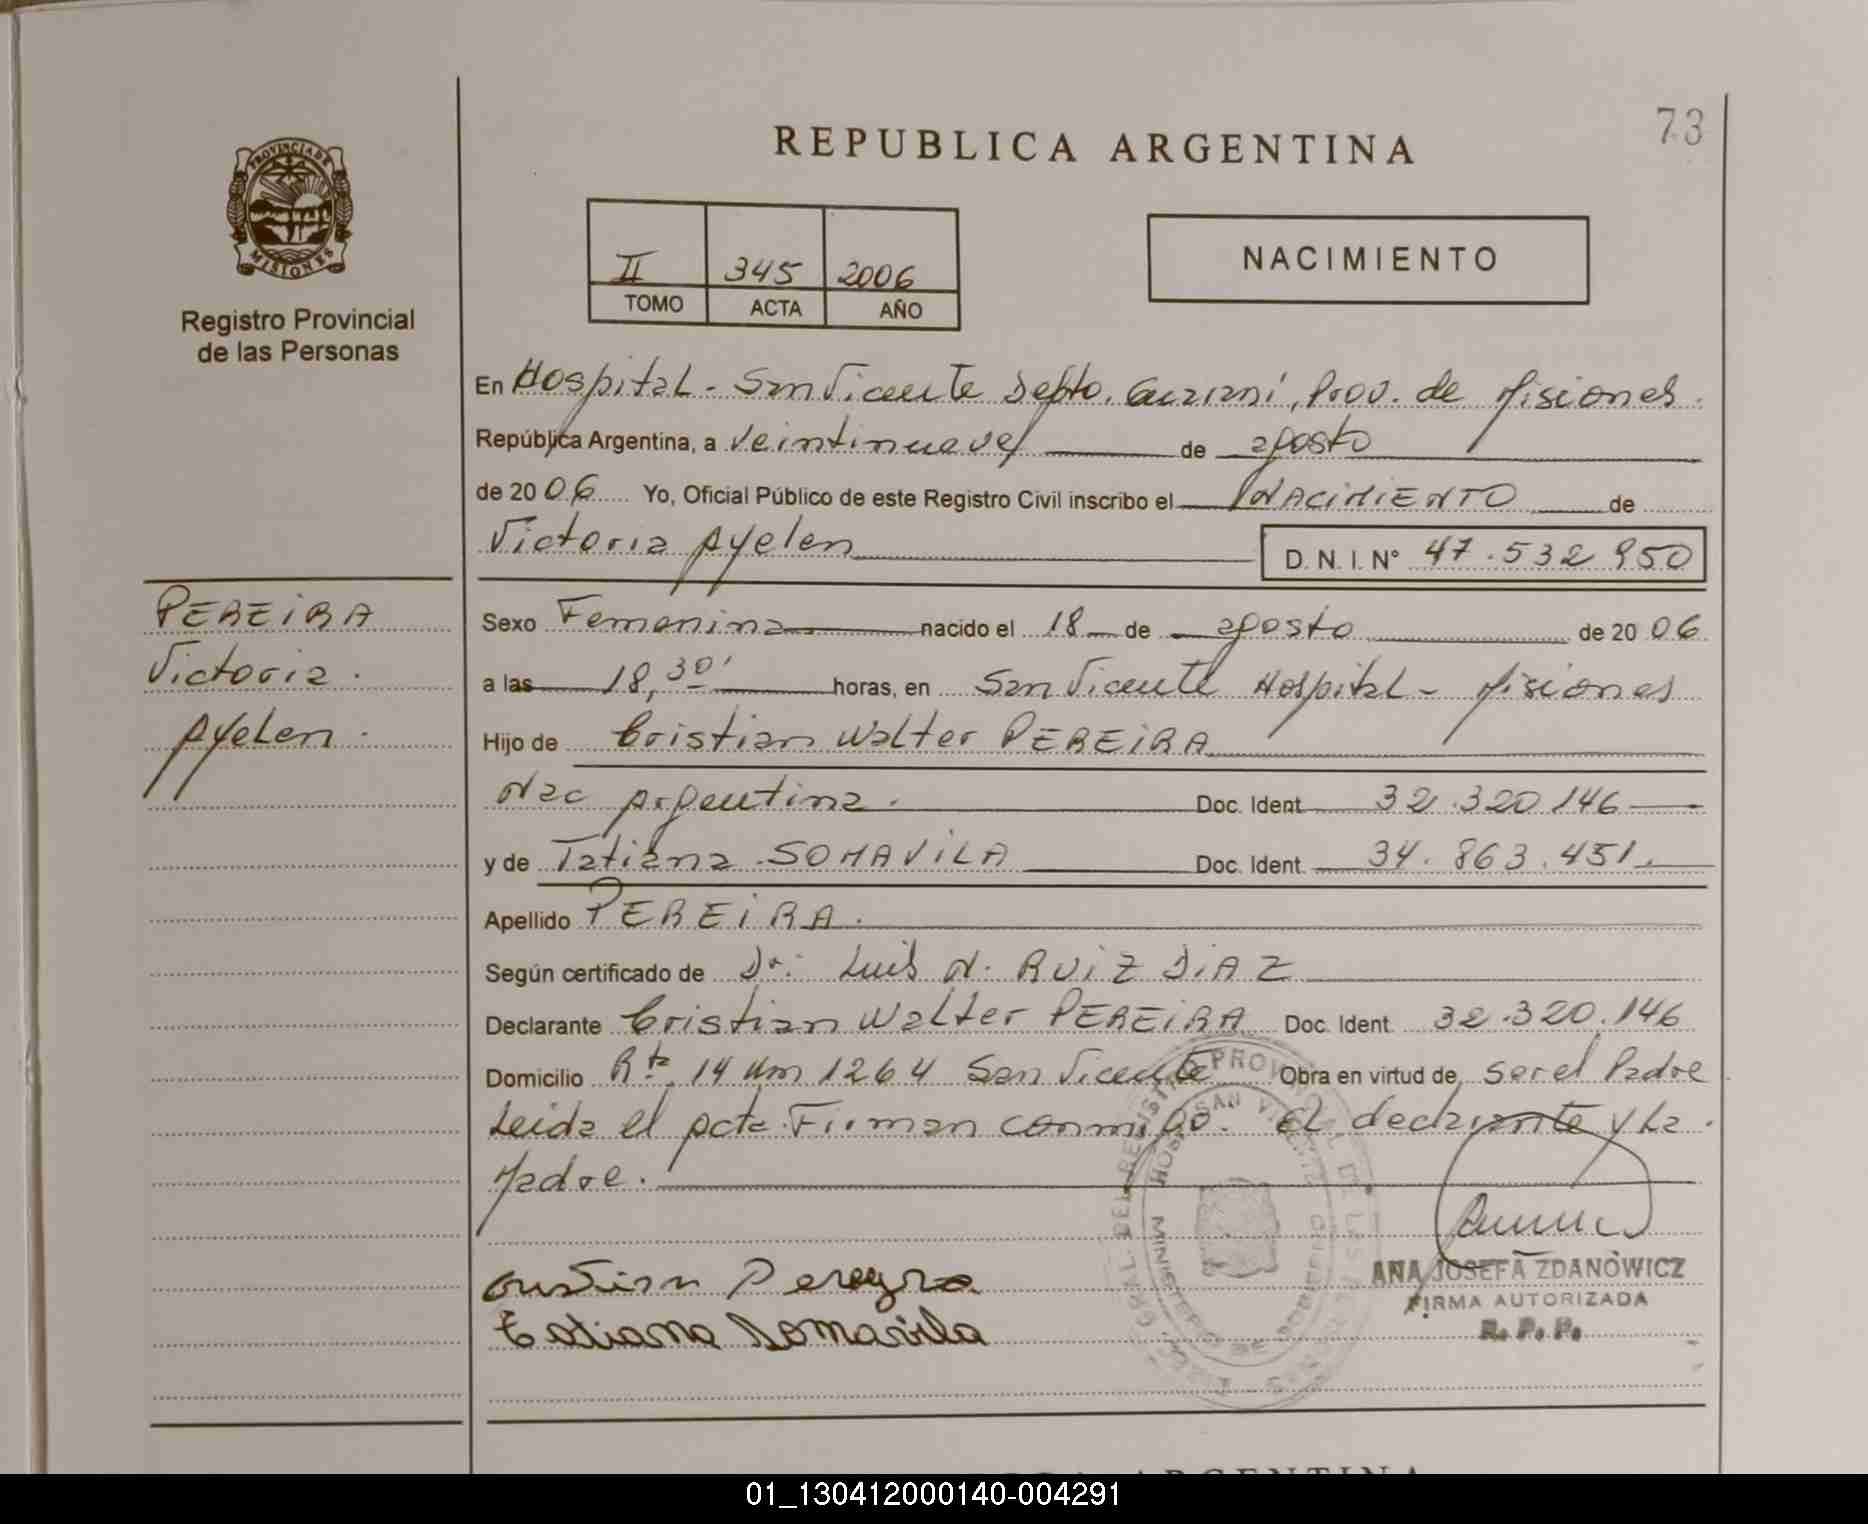 73
REPUBLICA ARGENTINA
PROVINCIA DE
MISIONES
Registro Provincial
de las Personas
II 345 2006
TOMO ACTA AÑO
NACIMIENTO
En Hospital - San Vicente Depto. Guaraní, Prov. de Misiones.
República Argentina, a veintinueve de agosto
de 2006 Yo, Oficial Público de este Registro Civil inscribo el NACIMIENTO de
Victoria Ayelen D.N.I. N° 47.532.950
PEREIRA
Victoria.
Ayelen.
Sexo Femenina nacido el 18 de agosto de 2006
a las 18,30' horas, en San Vicente Hospital - Misiones
Hijo de Cristian Walter PEREIRA
Nac Argentina. Doc. Ident. 32.320.146
y de Tatiana SOMAVILA Doc. Ident. 34.863.451.
Apellido PEREIRA.
Según certificado de Dr: Luis N. RUIZ DIAZ
Declarante Cristian Walter PEREIRA Doc. Ident. 32.320.146
Domicilio Rta. 14 Km 1264 San Vicente Obra en virtud de ser el Padre
Leida el acta Firman conmigo. El declarante y La.
Madre.
Cristian Pereyra
Tatiana Somavila
ANA JOSEFA ZDANOWICZ
FIRMA AUTORIZADA
R. P. P.
ARGENTINA
01_130412000140-004291